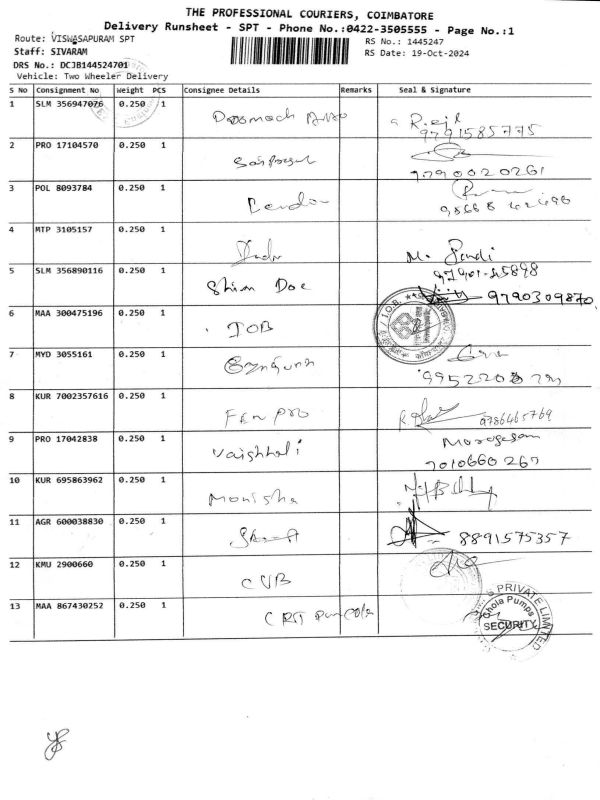 THE PROFESSIONAL COURIERS, COIMBATORE
Delivery Runsheet - SPT - Phone No.:0422-3505555 - Page No.:1
Route: VISWASAPURAM SPT
RS No.: 1445247
Staff: SIVARAM
RS Date: 19-Oct-2024
DRS No.: DCJB144524701
Vehicle: Two Wheeler Delivery
S No Consignment No Weight PCS Consignee Details Remarks Seal & Signature
1 SLM 356947076 0.250 1
9791585775
2 PRO 17104570 0.250 1
9790020261
3 POL 8093784 0.250 1
4 MTP 3105157 0.250 1
M. Pandi
5 SLM 356890116 0.250 1 Shim Doe
9790309870
6 MAA 300475196 0.250 1 IOB
I.O.B.
7 MYD 3055161 0.250 1
8 KUR 7002357616 0.250 1 Fen Pro
9786465769
9 PRO 17042838 0.250 1 Vaishhali
Morogesam
7010660267
10 KUR 695863962 0.250 1 Monisha
11 AGR 600038830 0.250 1
8891575357
12 KMU 2900660 0.250 1 CUB
13 MAA 867430252 0.250 1 CRI
PRIVATE LIMITED
Chola Pumps
SECURITY